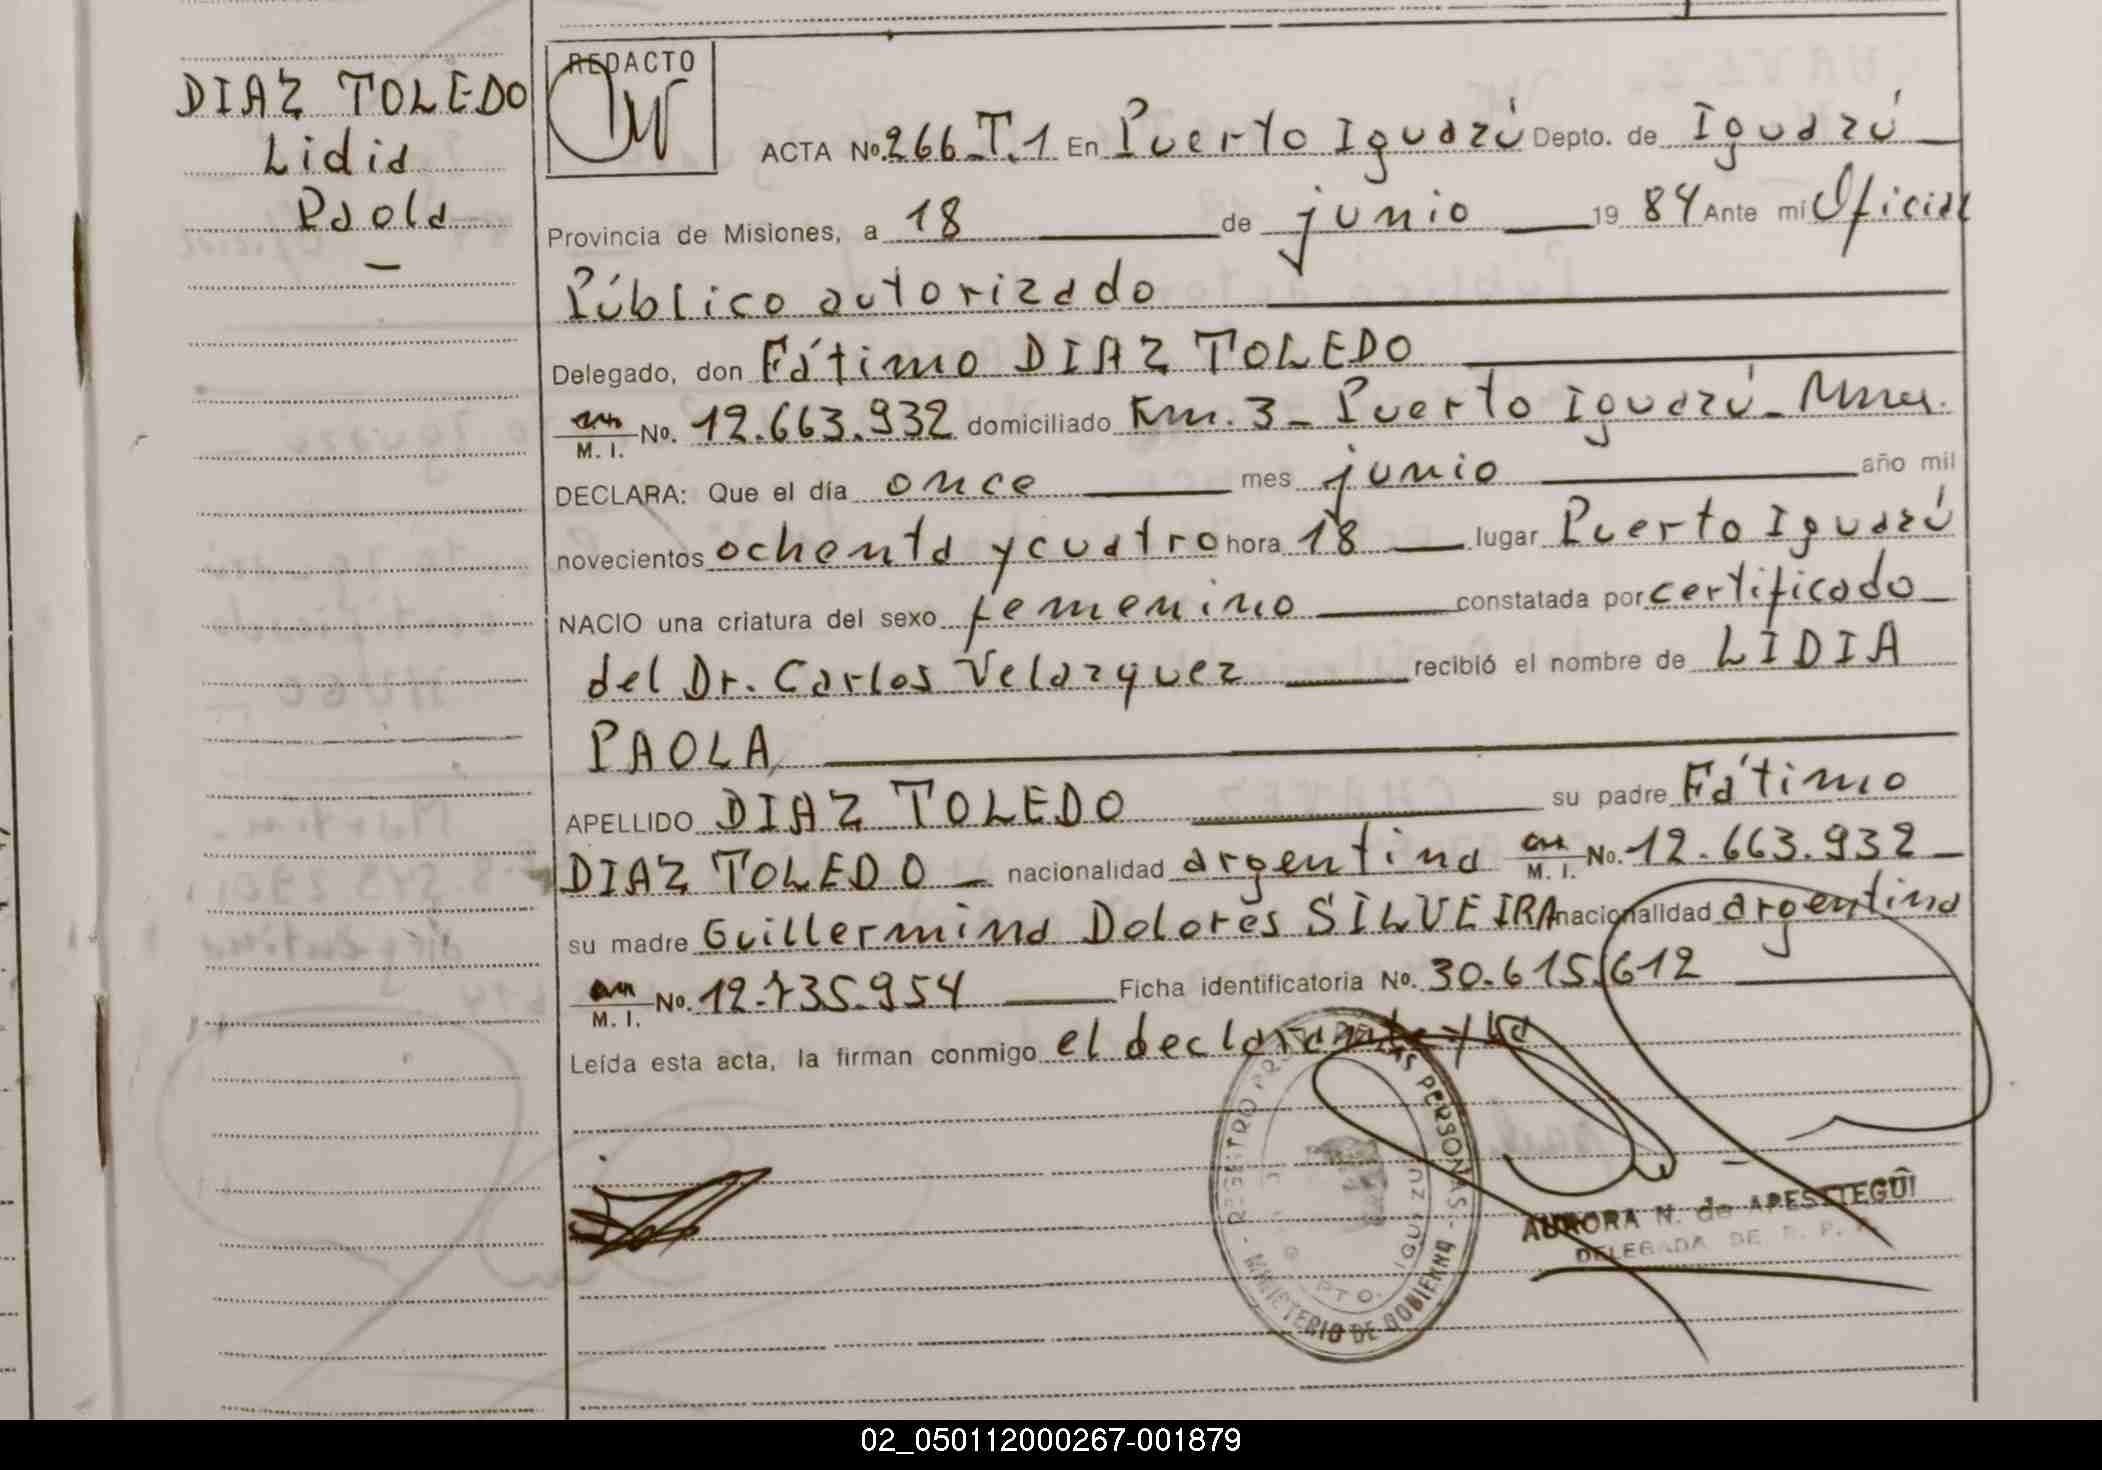 DIAZ TOLEDO
Lidia
Paola
REDACTO
ACTA No. 266 T.1 En Puerto Iguazú Depto. de Iguazú
Provincia de Misiones, a 18 de junio 1984 Ante mi Oficial
Público autorizado
Delegado, don Fátimo DIAZ TOLEDO
M. I. No. 12.663.932 domiciliado Km. 3 - Puerto Iguazú - Mnes.
DECLARA: Que el día once mes junio año mil
novecientos ochenta y cuatro hora 18 lugar Puerto Iguazú
NACIO una criatura del sexo femenino constatada por certificado
del Dr. Carlos Velazquez recibió el nombre de LIDIA
PAOLA
APELLIDO DIAZ TOLEDO su padre Fátimo
DIAZ TOLEDO nacionalidad argentina M. I. No. 12.663.932
su madre Guillermina Dolores SILVEIRA nacionalidad argentina
M. I. No. 12.735.954 Ficha identificatoria No. 30.615.612
Leída esta acta, la firman conmigo el declarante y la
REGISTRO PERSONAS - MINISTERIO DE GOBIERNO
DPTO. IGUAZU
AURORA N. de APESTEGUI
DELEGADA DE R. P.
02_050112000267-001879